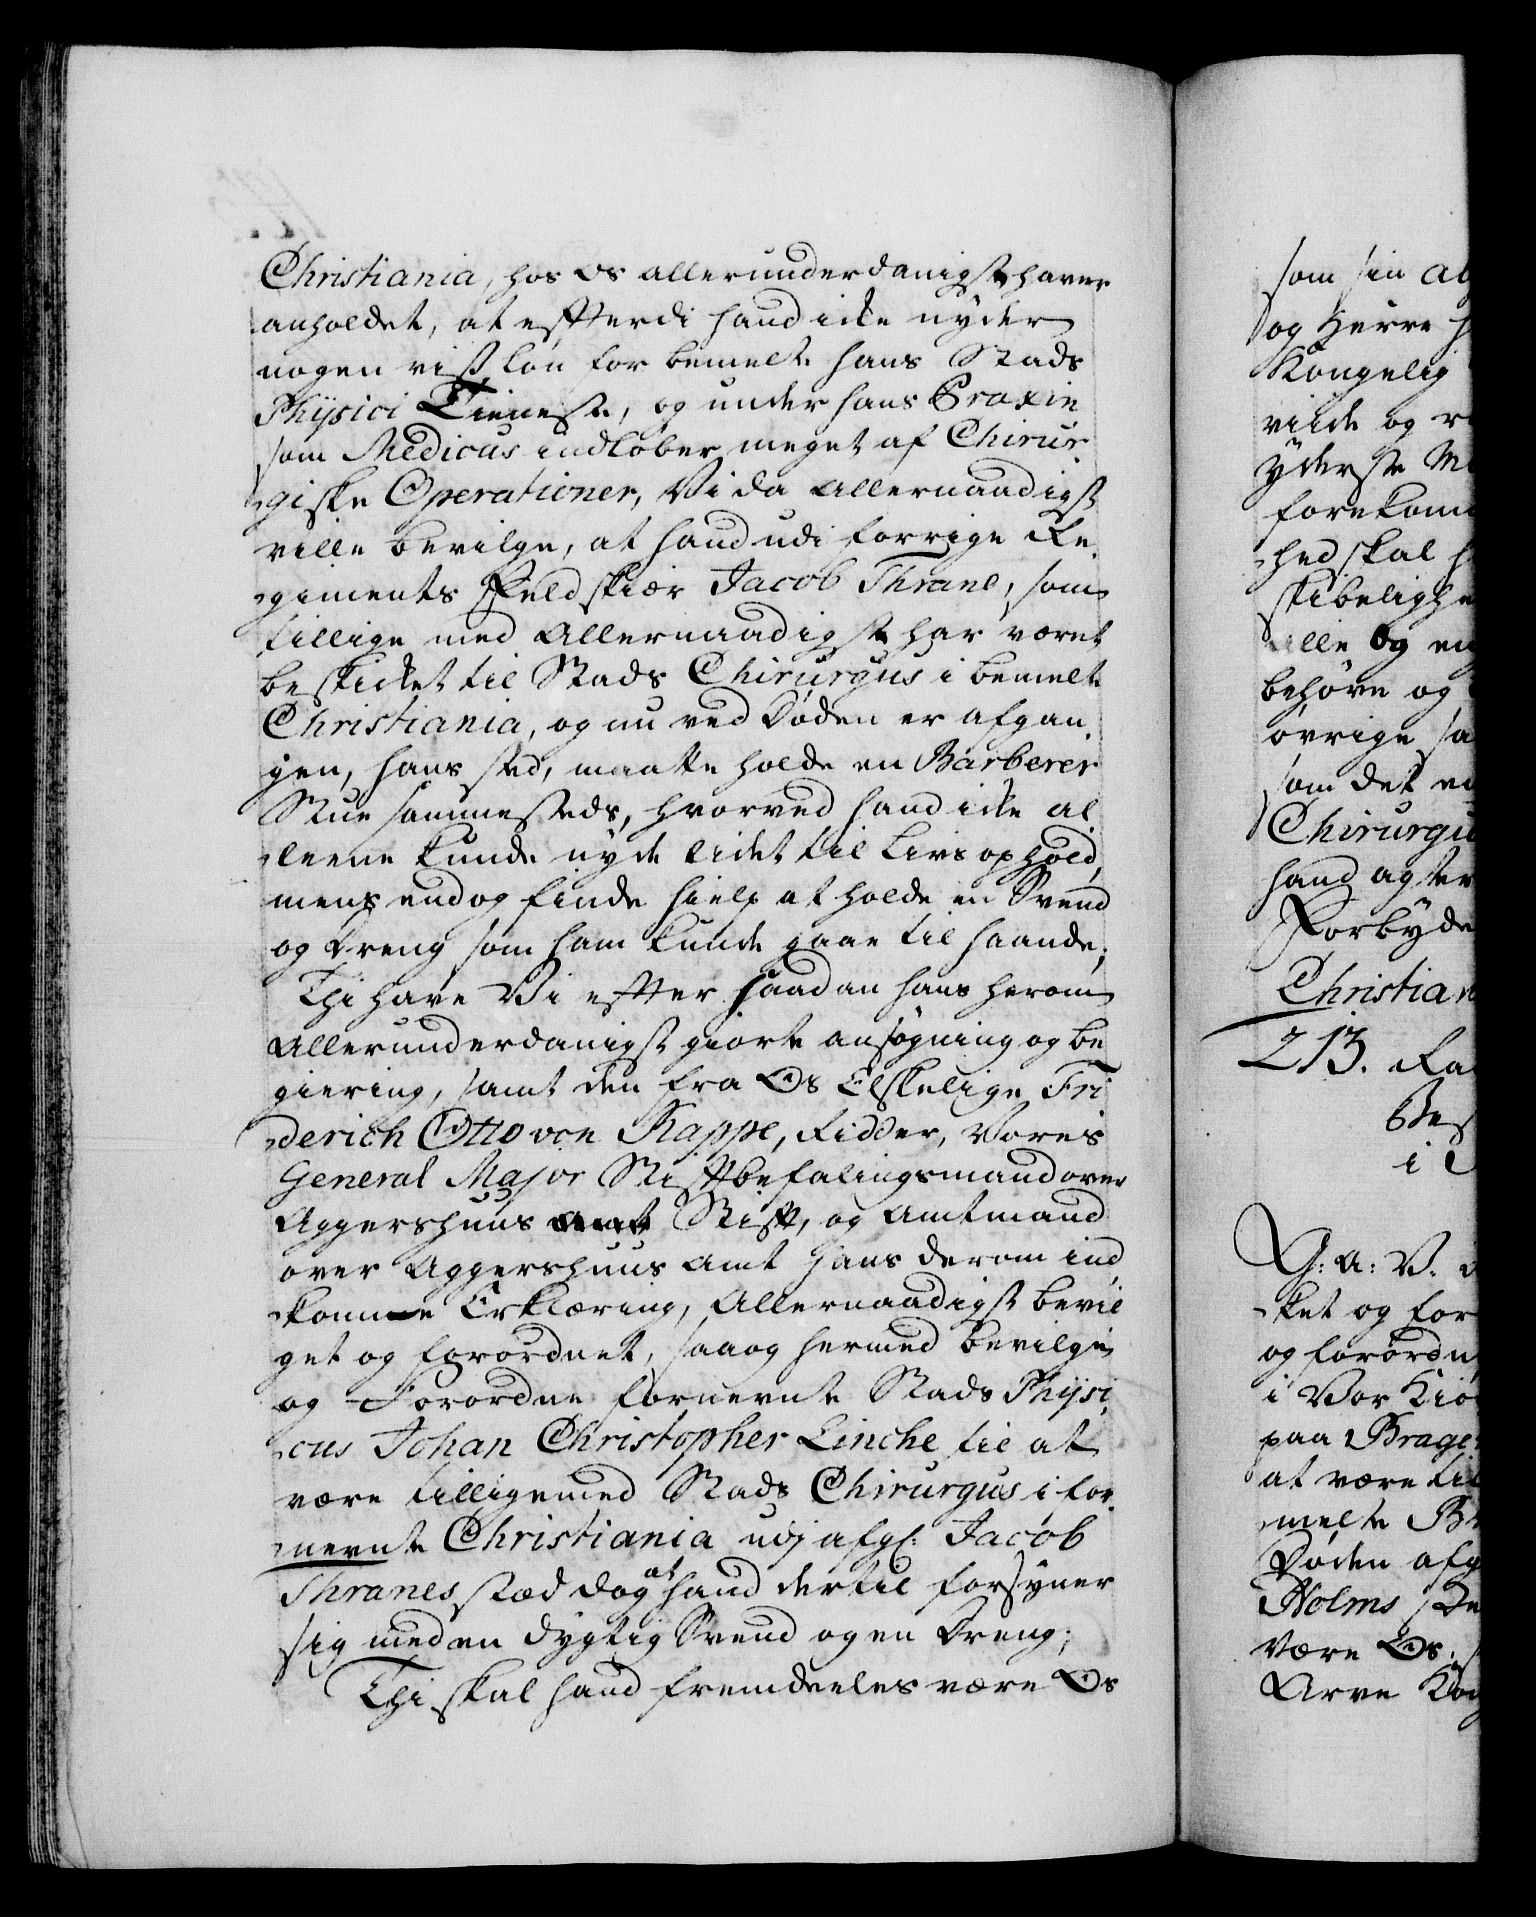 Christiania, hos os allerunderdanigst haver
anholdet, at efftterdi hand icke nyder
nogen viss løn for bemelte hans Stads
Physici Tieneste, og under hans Praxin
som Medicus indløber meget af Chirur-
giske Operationer, Vi da Allernaadigst
ville bevilge, at hand udi forrige Re-
giments Feldskiær Jacob Thrane, som
tillige med Allernaadigst har været
beskicket til Stads Chirurgus i bemelte
Christiania, og nu ved Døden er afgan-
gen, hans sted, maatte holde en Barberer
Stue sammesteds, hvorved hand icke al-
leene kunde nyde lidet til Livs ophold,
mens endog finde hielp at holde en Svend
og Dreng som ham kunde gaae til haande;
Thi have Vi effter saadan hans herom
Allerunderdanigst giorte ansøgning og be
giering, samt den fra Os Elskelige Fri
derich Otto von Rappe, Ridder, Vores
General Major Stifftbefalingsmand over
Aggershuus Stifft, og Amtmand
over Aggershuus Amt hans derom ind
komne Erklæring, Allernaadigst bevil
get og forordnet, saa og hermed bevilge
og Forordne fornevnte Stads Physi
cus Johan Christopher Linche til at
være tilligemed Stads Chirurgus i for-
nevnte Christiania udj afg: Jacob
Thranes stæd dog at hand dertil forsyner
sig med en dygtig Svend og en Dreng;
Thi skal hand fremdeeles være Os
som sin
og Herre
Kongelig
vilde og
yderste
forekom
hed skal
skibelighe
alle og en
behøve og
øvrige
som det
Chirurgu
hand agter
Forbyde
Christian
213.
Bes
i
G: A: V.
ket og for
og forordn
i Vor Kiø
paa Brage
at være til
melte Br
Døden afg
Holms
være Os
Arve Kon